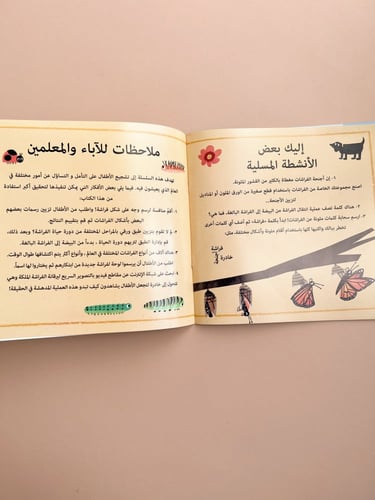 إليك بعض
الأنشطة المسلية
١- إن أجنحة الفراشات مغطاة بالكثير من القشور الملونة.
اصنع مجموعتك الخاصة من الفراشات باستخدام قطع صغيرة من الورق الملون أو المناديل
لتزيين الأجنحة...
٢- هناك كلمة تصف عملية انتقال الفراشة من البيضة إلى الفراشة البالغة، فما هي؟
٣- ارسم سحابة كلمات ملونة عن الفراشات! ابدأ بكلمة «فراشة»، ثم أضف أي كلمات أخرى
تخطر ببالك واكتبها كلها باستخدام أقلام ملونة وبأشكال مختلفة، مثل:
فراشة
أجنحة
خادرة
ملاحظات للآباء والمعلمين
تهدف هذه السلسلة إلى تشجيع الأطفال على التأمل و التساؤل عن أمور مختلفة في
العالم الذي يعيشون فيه. فيما يلي بعض الأفكار التي يمكن تنفيذها لتحقيق أكبر استفادة
من هذا الكتاب:
١- أقم منافسة لرسم وجه على شكل فراشة! واطلب من الأطفال تزيين رسمات بعضهم
البعض بأشكال الفراشات ثم قم بتقييم النتائج.
٢- و لا تقوم بتزيين طبق ورقي بالمراحل المختلفة من دورة حياة الفراشة؟ وبعد ذلك،
قم بإدارة الطبق لتريهم دورة الحياة، بدءاً من البيضة إلى الفراشة البالغة.
٣- هناك آلاف من أنواع الفراشات المختلفة في العالم، وأنواع أكثر يتم اكتشافها طوال الوقت.
اطلب من الأطفال أن يرسموا لوحة لفراشة جديدة من ابتكارهم ثم يختاروا لها اسماً.
٤- ابحث على شبكة الإنترنت عن مقاطع فيديو بالتصوير السريع ليرقانة الفراشة الملكة وهي
تتحول إلى خادرة لتجعل الأطفال يشاهدون كيف تبدو هذه العملية المدهشة في الحقيقة!